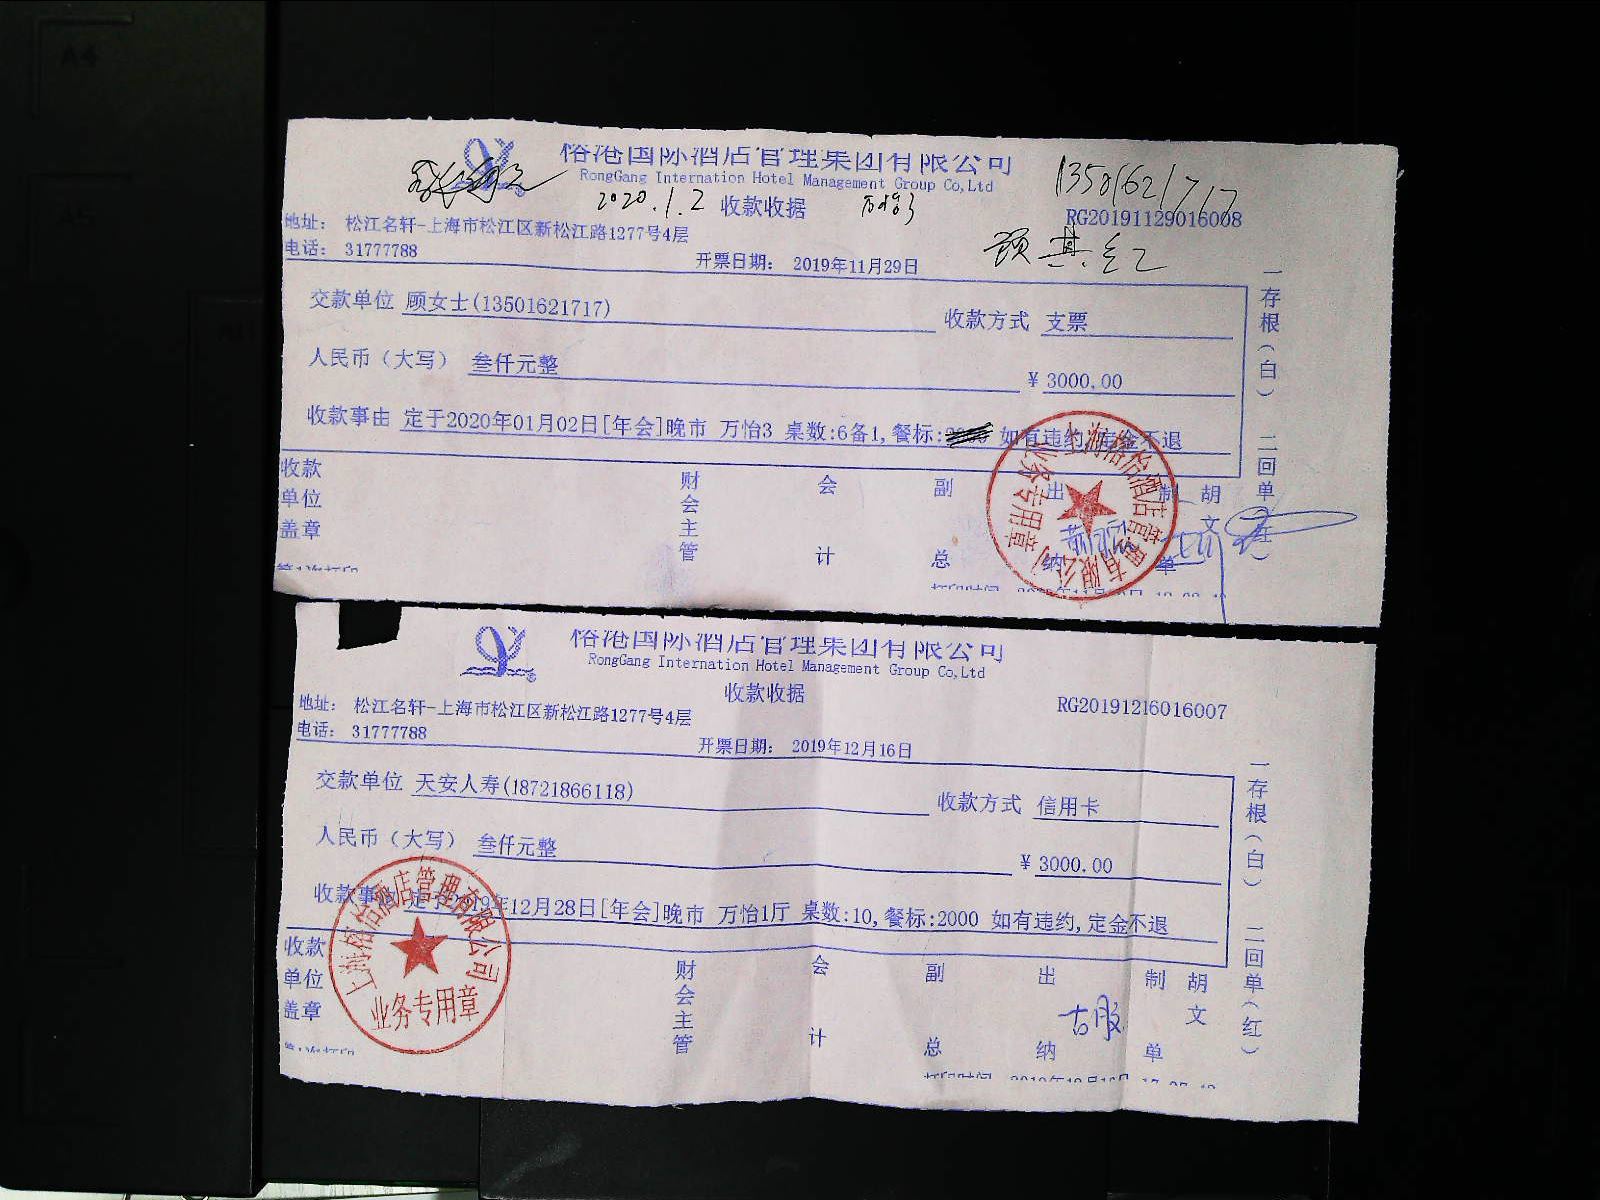 榕港国际酒店管理集团有限公司
RongGang Internation Hotel Management Group Co,Ltd
13501621717
2020.1.2 收款收据 万怡3
RG20191129016008
地址: 松江名轩-上海市松江区新松江路1277号4层
电话: 31777788
开票日期: 2019年11月29日
顾其红
交款单位 顾女士(13501621717) 收款方式 支票
人民币(大写) 叁仟元整 ¥ 3000.00
收款事由 定于2020年01月02日[年会]晚市 万怡3 桌数:6备1,餐标: 如有违约,定金不退
收款单位盖章 财会主管 会计 副总 出纳 制单 胡文
一存根(白) 二回单(红)
上海榕怡酒店管理有限公司
业务专用章
榕港国际酒店管理集团有限公司
RongGang Internation Hotel Management Group Co,Ltd
收款收据
RG20191216016007
地址: 松江名轩-上海市松江区新松江路1277号4层
电话: 31777788
开票日期: 2019年12月16日
交款单位 天安人寿(18721866118) 收款方式 信用卡
人民币(大写) 叁仟元整 ¥ 3000.00
收款事由 定于2019年12月28日[年会]晚市 万怡1厅 桌数:10,餐标:2000 如有违约,定金不退
收款单位盖章 财会主管 会计 副总 出纳 制单 胡文
一存根(白) 二回单(红)
上海榕怡酒店管理有限公司
业务专用章